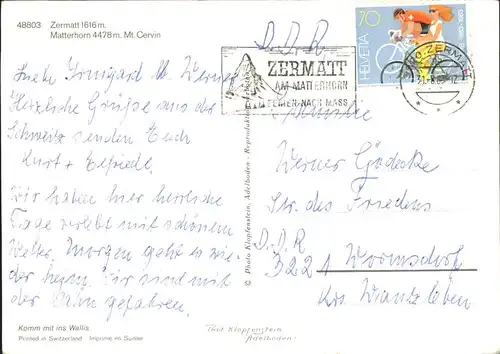 48803 Zermatt 1616 m.
Matterhorn 4478 m. Mt. Cervin
Irmgard + Werner
Herzliche Grüße aus der
Schweiz senden Euch
Kurt +
Wir haben hier herrliche
Tage verlebt mit schönem
Wetter. Morgen geht es wie-
der heim. Wir sind mit
der Bahn gefahren.
Komm mit ins Wallis
Printed in Switzerland Imprimé en Suisse
© Photo Klopfenstein, Adelboden - Reproduktion
Photo Klopfenstein
Adelboden
D. D. R.
ZERMATT
AM MATTERHORN
FERIEN NACH MASS
HELVETIA 70
ZERMATT
Familie
Werner Gädecke
Str. des Friedens
D. D. R
3221 Wormsdorf
Krs. Wanzleben